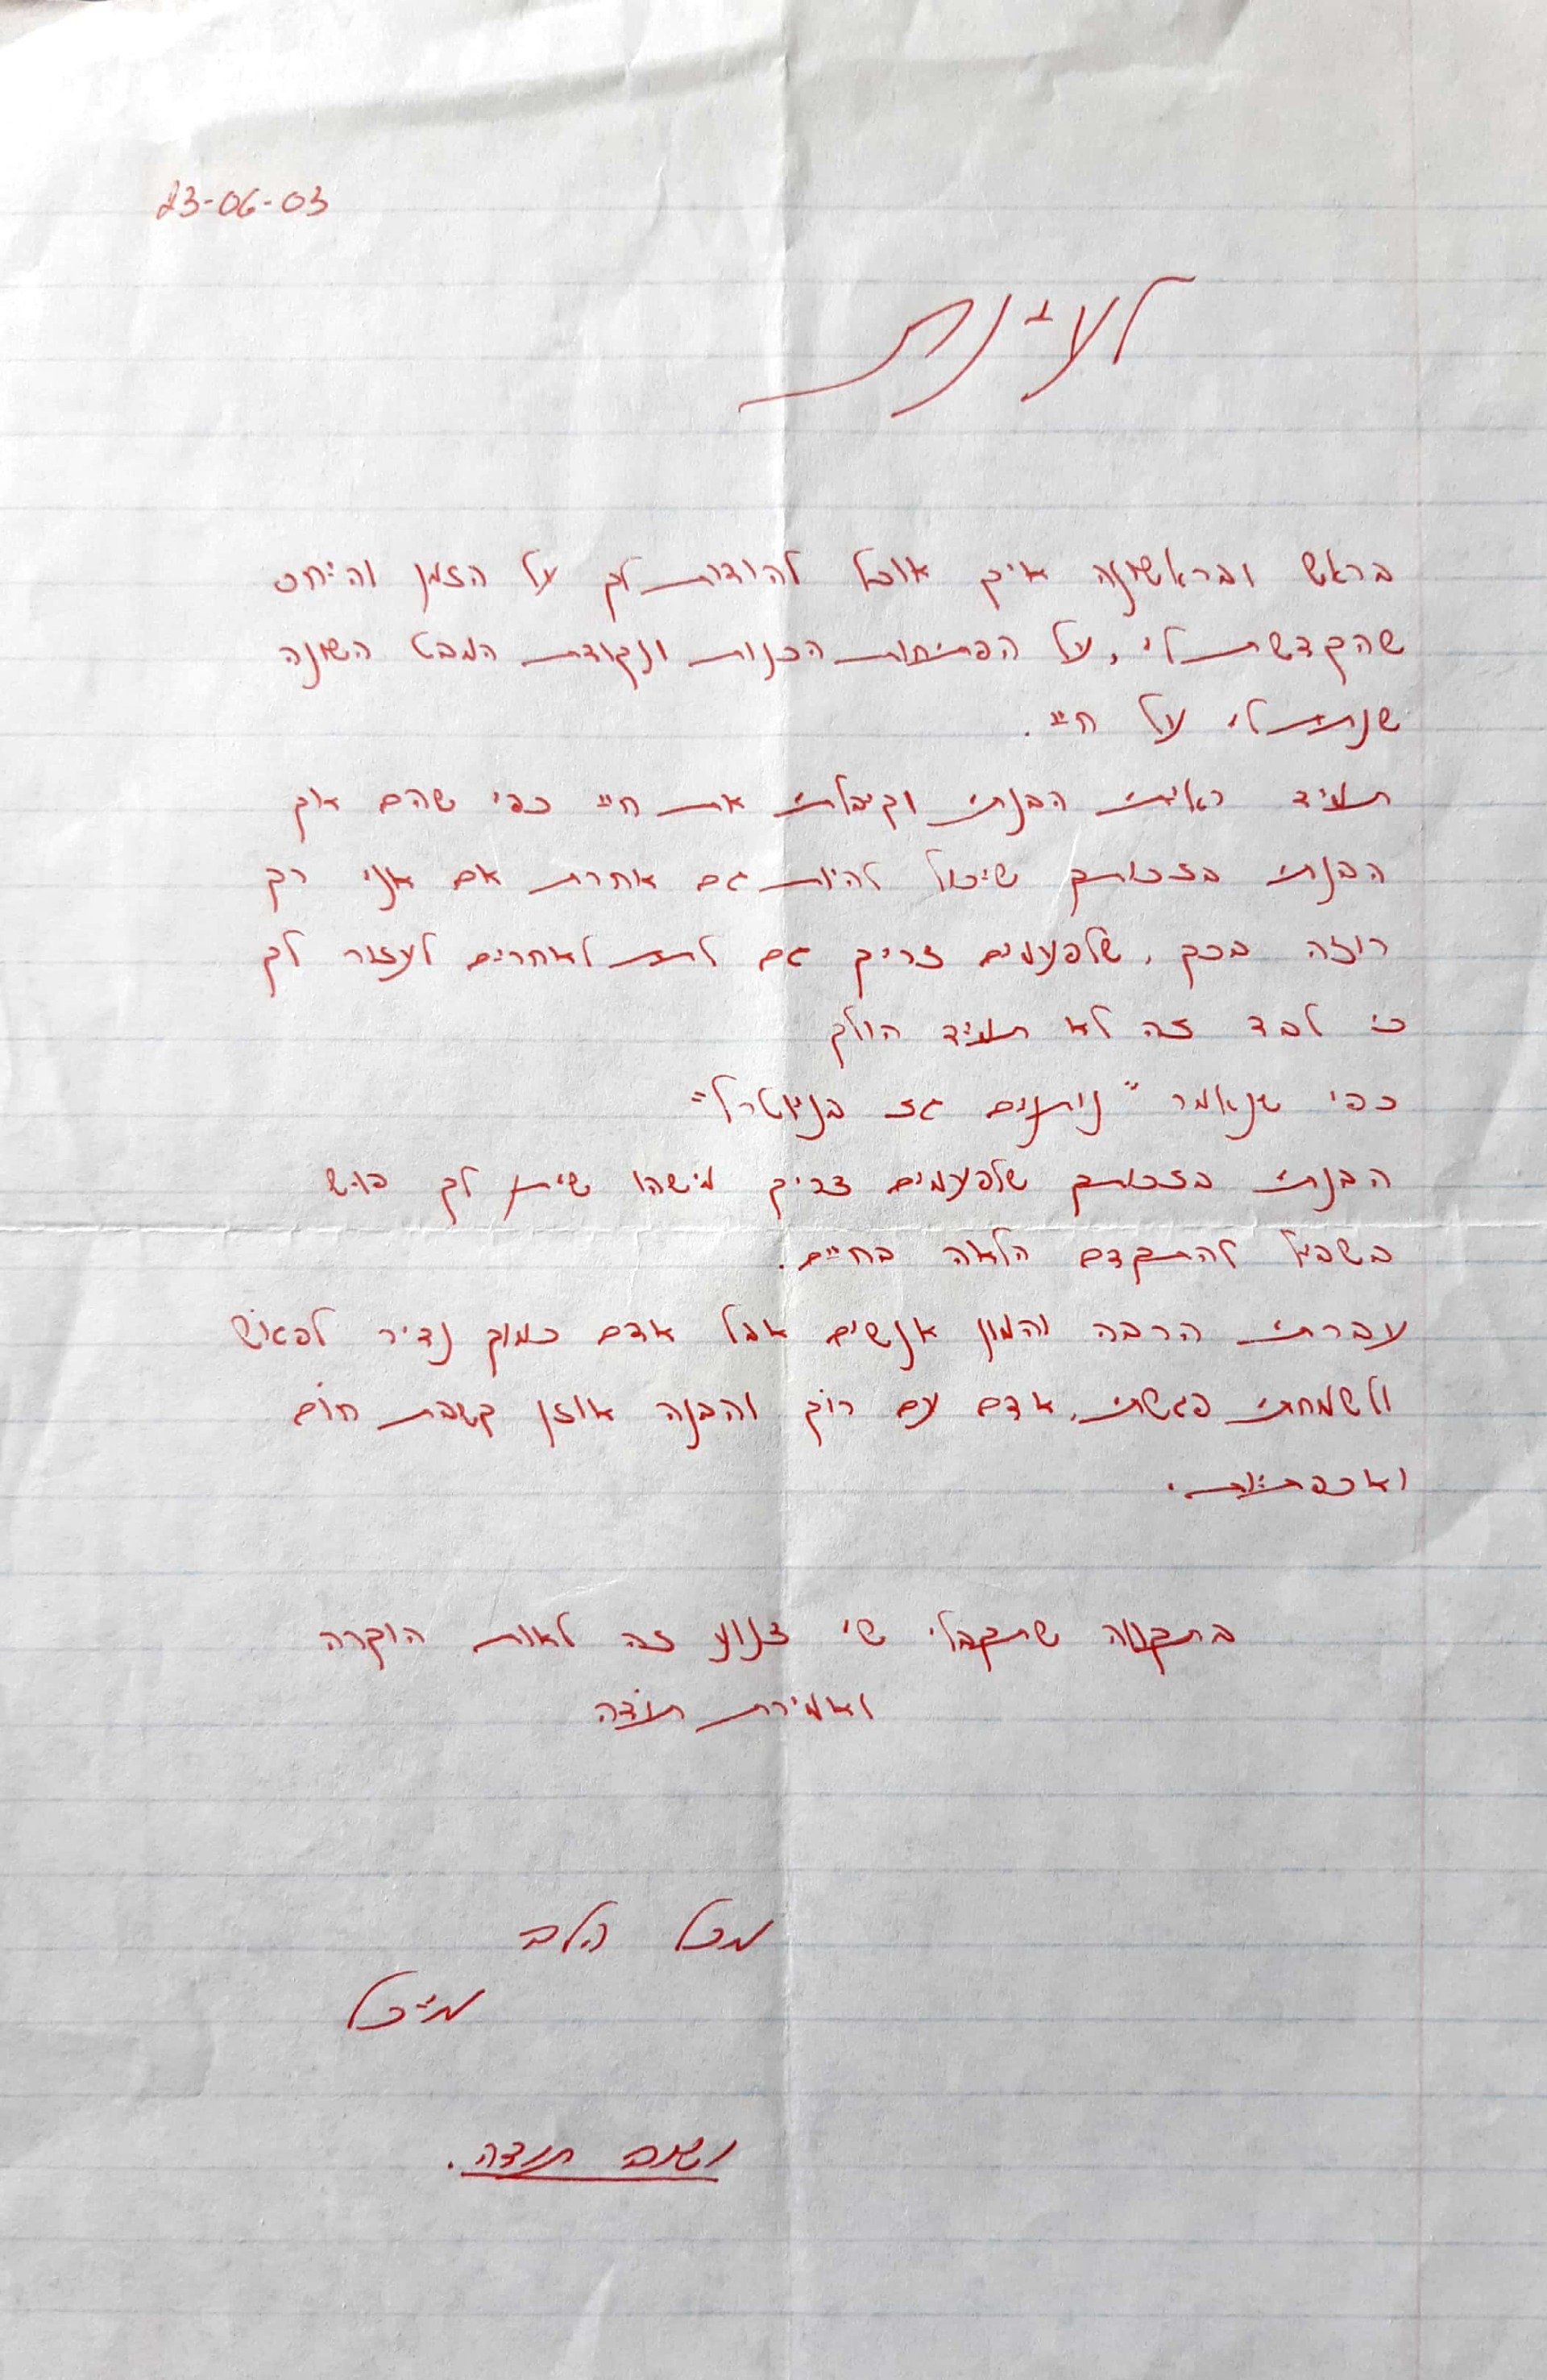 23-06-03
לעינת
בראש ובראשונה איך אוכל להודות לך על הזמן והיחס
שהקדשת לי, על הפתיחות הכנות ונקודת המבט השונה
שנתת לי על חיי.
תמיד ראיתי הבנתי וקיבלתי את חיי כפי שהם אך
הבנתי בזכותך שיכול להיות גם אחרת אם אני רק
רוצה בכך, שלפעמים צריך גם לתת לאחרים לעזור לך
כי לבד זה לא תמיד הולך
כפי שנאמר "נותנים גז בניוטרל"
הבנתי בזכותך שלפעמים צריך מישהו שיתן לך פוש
בשביל להתקדם הלאה בחיים.
עברתי הרבה והמון אנשים אבל אדם כמוך נדיר לפגוש
ולשמחתי פגשתי, אדם עם רוך והבנה אוזן קשבת חום
ואכפתיות.
בתקווה שתקבלי שי צנוע זה לאות הוקרה
ואמירת תודה
מכל הלב
מיכל
ושוב תודה.